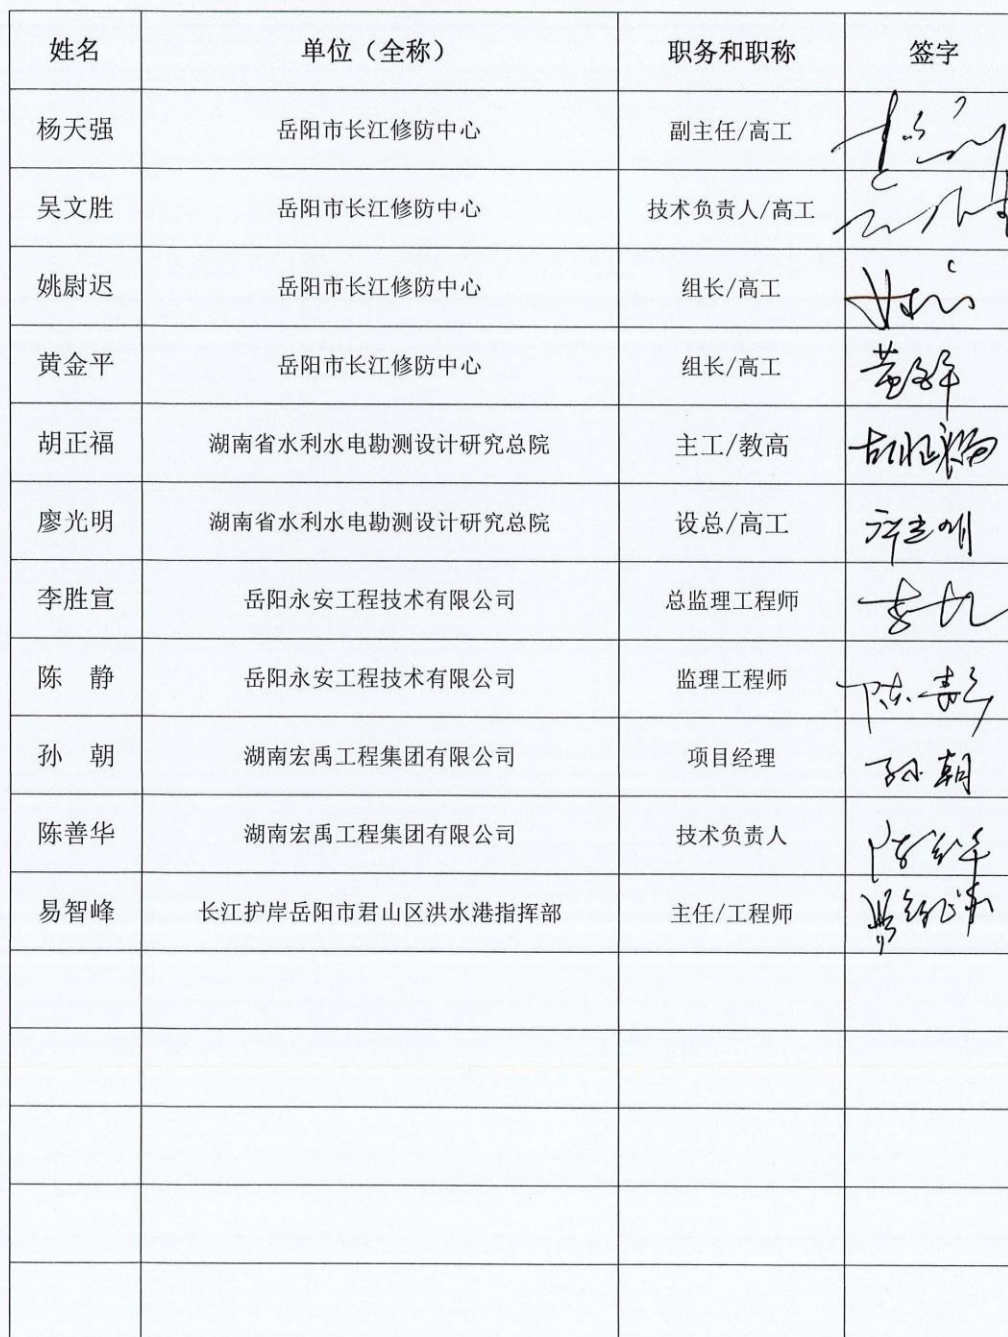 姓名 单位（全称） 职务和职称 签字
杨天强 岳阳市长江修防中心 副主任/高工
吴文胜 岳阳市长江修防中心 技术负责人/高工
姚尉迟 岳阳市长江修防中心 组长/高工
黄金平 岳阳市长江修防中心 组长/高工 黄金平
胡正福 湖南省水利水电勘测设计研究总院 主工/教高 胡正福
廖光明 湖南省水利水电勘测设计研究总院 设总/高工
李胜宣 岳阳永安工程技术有限公司 总监理工程师
陈　静 岳阳永安工程技术有限公司 监理工程师 陈静
孙　朝 湖南宏禹工程集团有限公司 项目经理 孙朝
陈善华 湖南宏禹工程集团有限公司 技术负责人
易智峰 长江护岸岳阳市君山区洪水港指挥部 主任/工程师